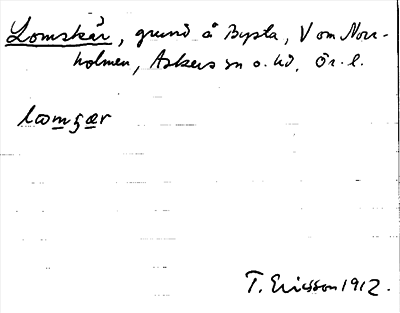 Lomskär, grund å Bysta, V om Norr-
holmen, Askers sn o. hd, Ör. l.
lωmʒær
T. Ericsson 1912.